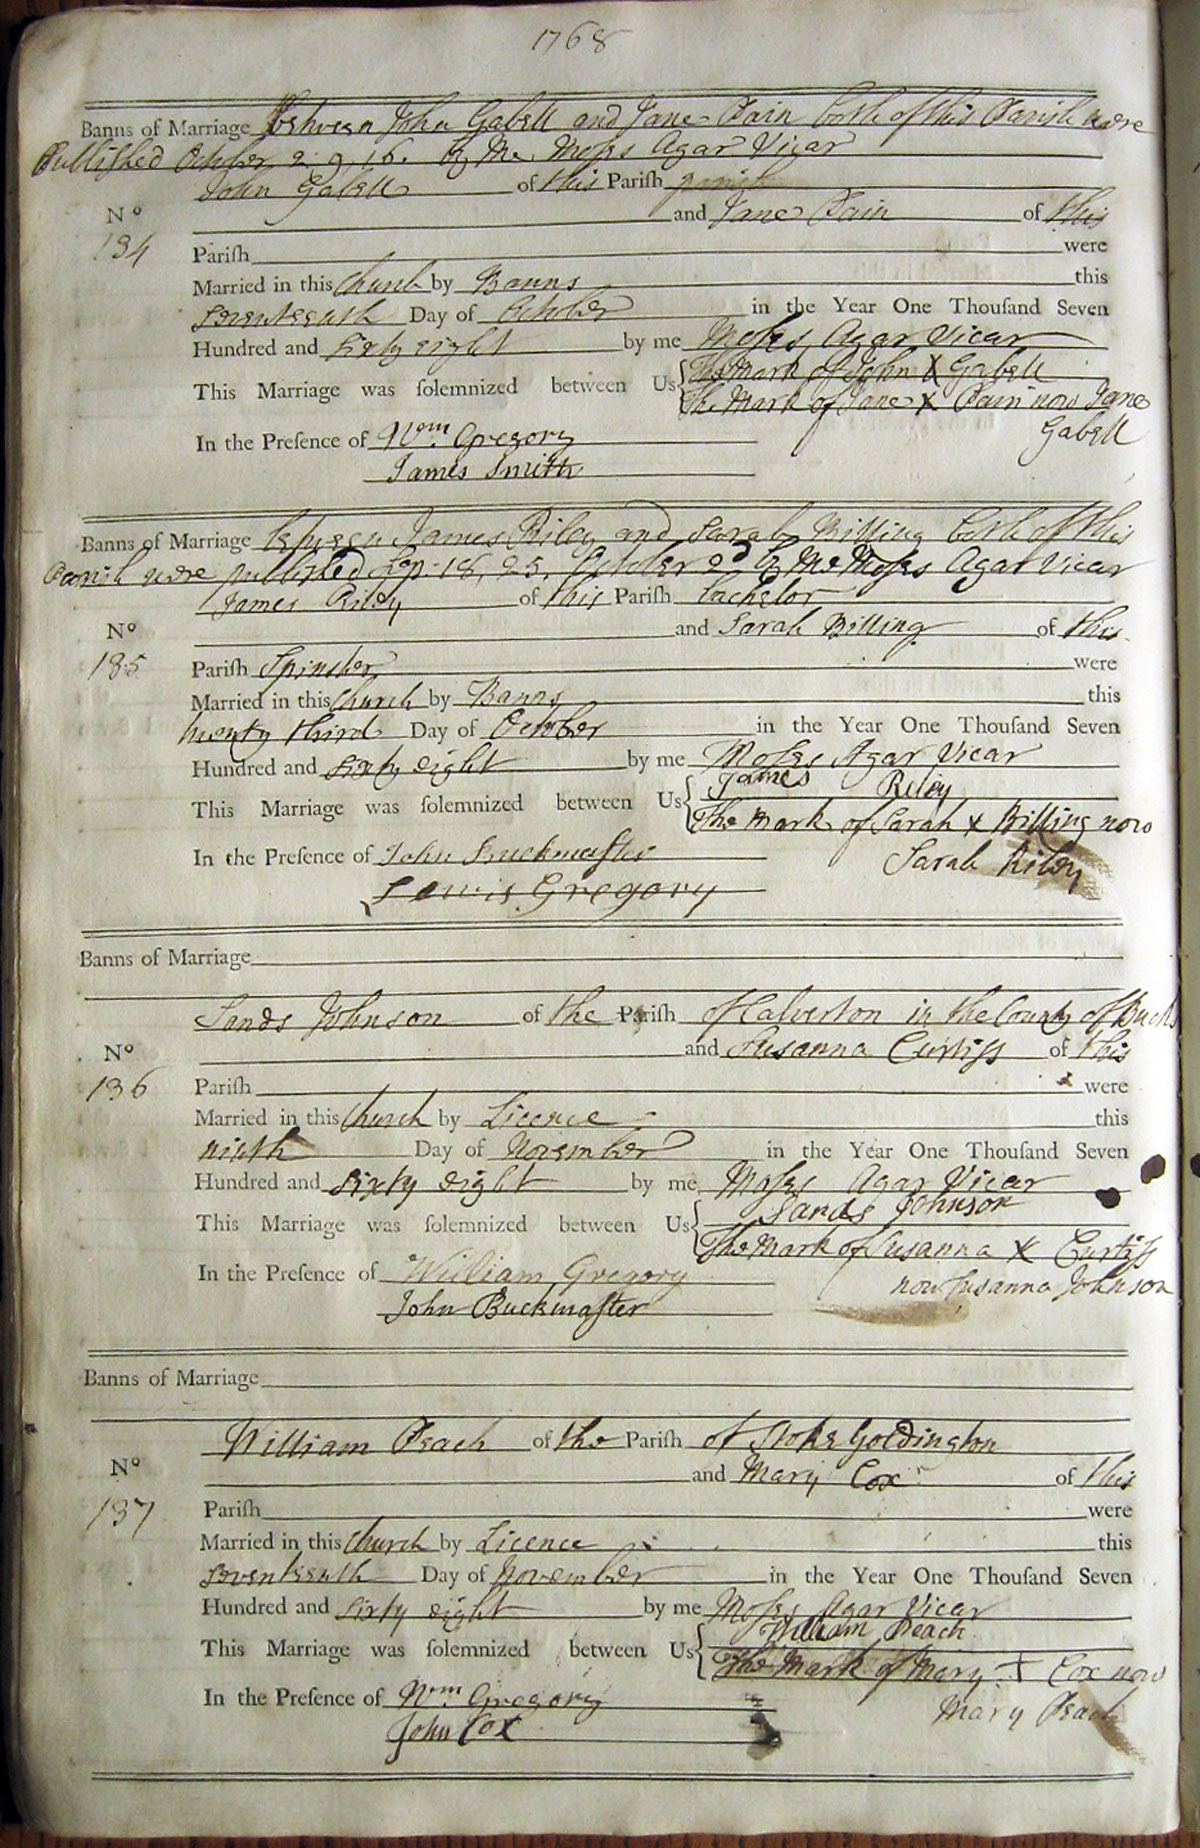 1768
Banns of Marriage between John Gabell and Jane Pain both of this Parish were
Published October 2. 9, 16. by Me Moses Agar Vicar
John Gabell of this Parish parish
No and Jane Pain of this
134 Pariſh were
Married in this Church by Banns this
Seventeenth Day of October in the Year One Thouſand Seven
Hundred and Sixty eight by me Moſes Agar Vicar
This Marriage was ſolemnized between Us The Mark of John X Gabell
The Mark of Jane X Pain now Jane
Gabell
In the Preſence of Wm Gregory
James Smith
Banns of Marriage between James Riley and Sarah Billing both of this
Parish were published Sep. 18, 25, October 2d by Me Moſes Agar Vicar
James Riley of this Pariſh bachelor
No and Sarah Billing of this
135 Pariſh Spinster were
Married in this Church by Banns this
twenty third Day of October in the Year One Thouſand Seven
Hundred and Sixty eight by me Moſes Agar Vicar
This Marriage was ſolemnized between Us James Riley
The Mark of Sarah X Billing now
Sarah Riley
In the Preſence of John Buckmaſter
Lewis Gregory
Banns of Marriage
Sands Johnson of the Pariſh of Calverton in the County of Bucks
No and Susanna Curtiſs of this
136 Pariſh were
Married in this Church by Licence this
ninth Day of November in the Year One Thouſand Seven
Hundred and Sixty eight by me Moſes Agar Vicar
This Marriage was ſolemnized between Us Sands Johnson
The Mark of Susanna X Curtiſs
now Susanna Johnson
In the Preſence of William Gregory
John Buckmaſter
Banns of Marriage
William Peach of the Pariſh of Stoke Goldington
No and Mary Cox of this
137 Pariſh were
Married in this Church by Licence this
Seventeenth Day of November in the Year One Thouſand Seven
Hundred and Sixty eight by me Moſes Agar Vicar
This Marriage was ſolemnized between Us William Peach
The Mark of Mary + Cox now
Mary Peach
In the Preſence of Wm Gregory
John Cox